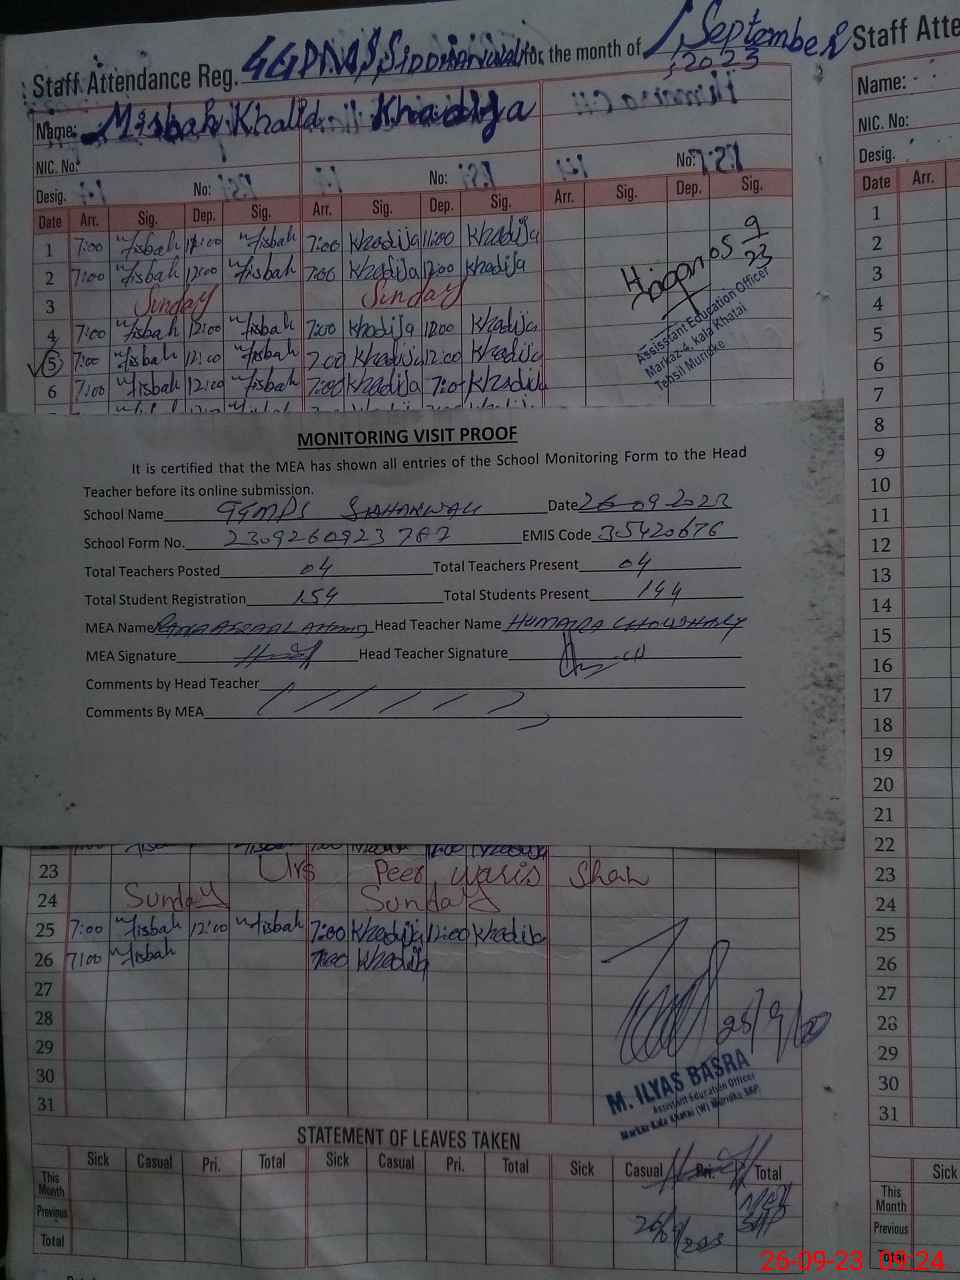 Staff Attendance Reg. for the month of September 2023
Staff Atte
Name: Misbah Khalid Khadija
Name:
NIC. No:
NIC. No:
Desig. No: No: No:
Desig.
Date Arr. Sig. Dep. Sig. Arr. Sig. Dep. Sig. Arr. Sig. Dep. Sig.
Date Arr.
1 7:00 Misbah 12:00 Misbah 7:00 Khadija 11:00 Khadija
2 7:00 Misbah 12:00 Misbah 7:00 Khadija 12:00 Khadija
3 Sunday Sunday
4 7:00 Misbah 12:00 Misbah 7:00 Khadija 12:00 Khadija
5 7:00 Misbah 12:00 Misbah 7:00 Khadija 12:00 Khadija
6 7:00 Misbah 12:00 Misbah 7:00 Khadija 7:0 Khadija
05 9/23
Assistant Education Officer
Markaz-4, Kala Khatai
Tehsil Muridke
MONITORING VISIT PROOF
It is certified that the MEA has shown all entries of the School Monitoring Form to the Head
Teacher before its online submission.
School Name GGMPS Date 26-09-2023
School Form No. 2309260923 EMIS Code 35420676
Total Teachers Posted 04 Total Teachers Present 04
Total Student Registration 154 Total Students Present 144
MEA Name Head Teacher Name HUMAIRA CHOUDHARY
MEA Signature Head Teacher Signature
Comments by Head Teacher
Comments By MEA
23 Urs Peer Waris Shah
24 Sunday Sunday
25 7:00 Misbah 12:00 Misbah 7:00 Khadija 12:00 Khadija
26 7:00 Misbah 7:00 Khadija
27
28
29
30
31
M. ILYAS BASRA
Assistant Education Officer
Markaz Kala Khatai (W) Muridke SKP
STATEMENT OF LEAVES TAKEN
Sick Casual Pri. Total Sick Casual Pri. Total Sick Casual Pri. Total
This Month
Previous
Total
1
2
3
4
5
6
7
8
9
10
11
12
13
14
15
16
17
18
19
20
21
22
23
24
25
26
27
28
29
30
31
Sick
This Month
Previous
Total
26-09-23 09:24